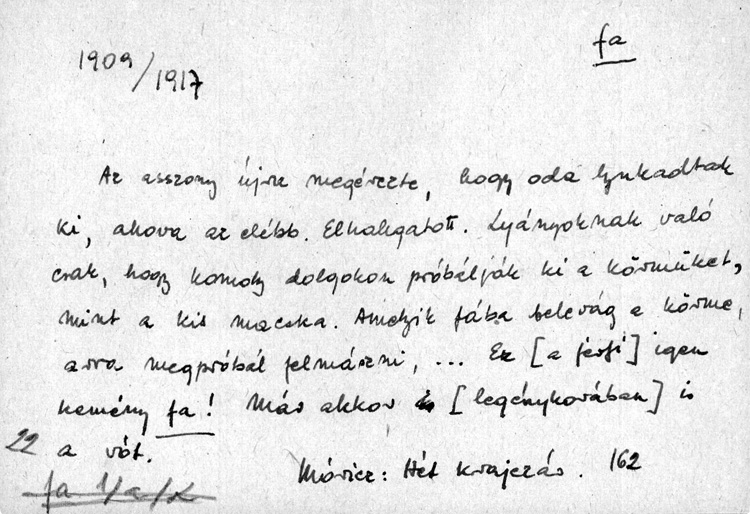 fa
1909/1917
Az asszony újra megérezte, hogy oda lyukadtak
ki, ahova az elébb. Elhallgatott. Lyányoknak való
csak, hogy komoly dolgokon próbálják ki a körmüket,
mint a kis macska. Amelyik fába belevág a körme,
arra megpróbál felmászni, ... Ez [a férfi] igen
kemény fa! Már akkor [legénykorában] is
a vót.
Móricz: Hét krajczár. 162
22
fa 1/a/